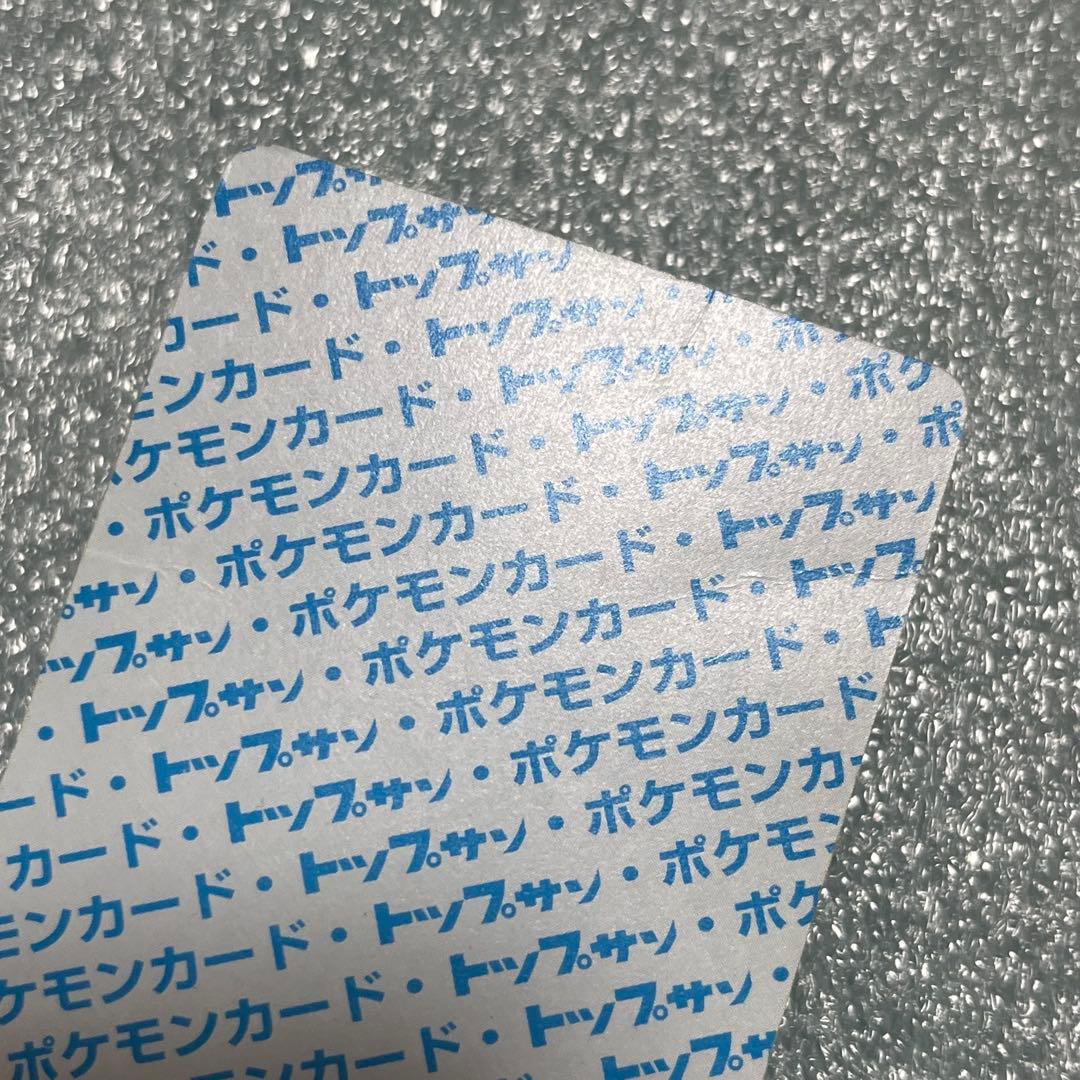 トップサ
ド・トップサン
カード・トップサン
モンカード・トップサン・ポ
ポケモンカード・トップサン・ポ
・ポケモンカード・トップサン・ポケ
プサン・ポケモンカード・トップサン・ポ
ップサン・ポケモンカード・トップサン
・トップサン・ポケモンカード・トップ
ード・トップサン・ポケモンカード・ト
カード・トップサン・ポケモンカード
モンカード・トップサン・ポケモンカ
ケモンカード・トップサン・ポケモン
ポケモンカード・トップサン・ポケ
ポケモンカード・トップサン・
ポケモンカード・トップサ